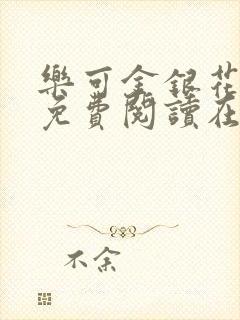 樂可金銀花
免費閱讀在
不余